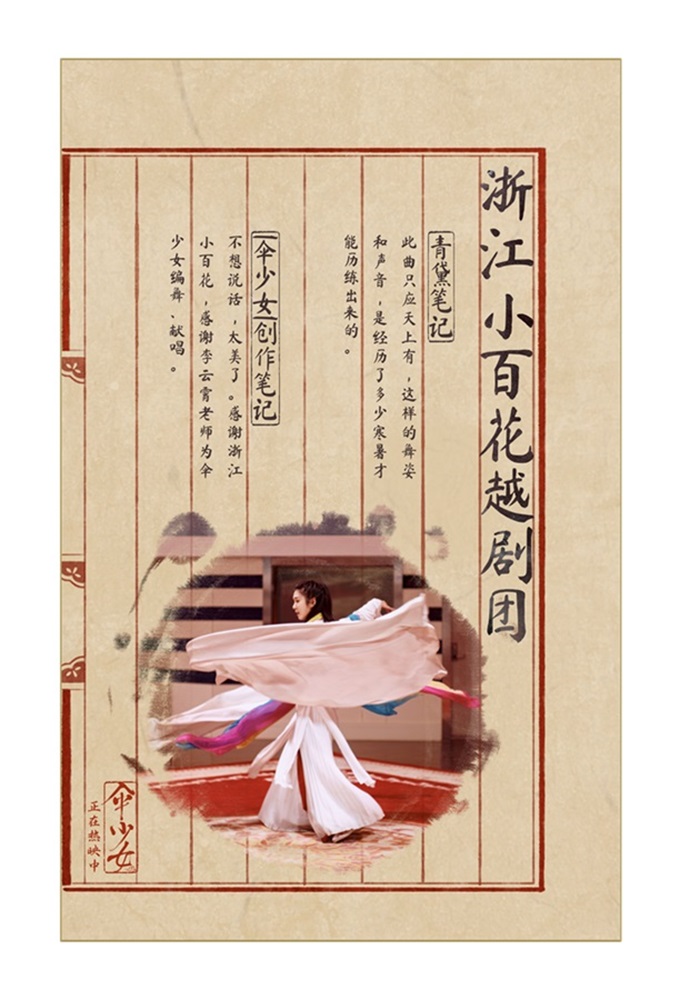 浙江小百花越剧团
青黛笔记
此曲只应天上有，这样的舞姿
和声音，是经历了多少寒暑才
能历练出来的。
伞少女创作笔记
不想说话，太美了。感谢浙江
小百花，感谢李云霄老师为伞
少女编舞、献唱。
伞少女
正在热映中